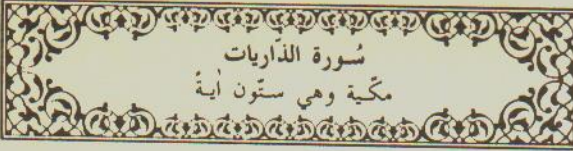 سُورة الذّاريات
مكّية وهي ستّون أيةً